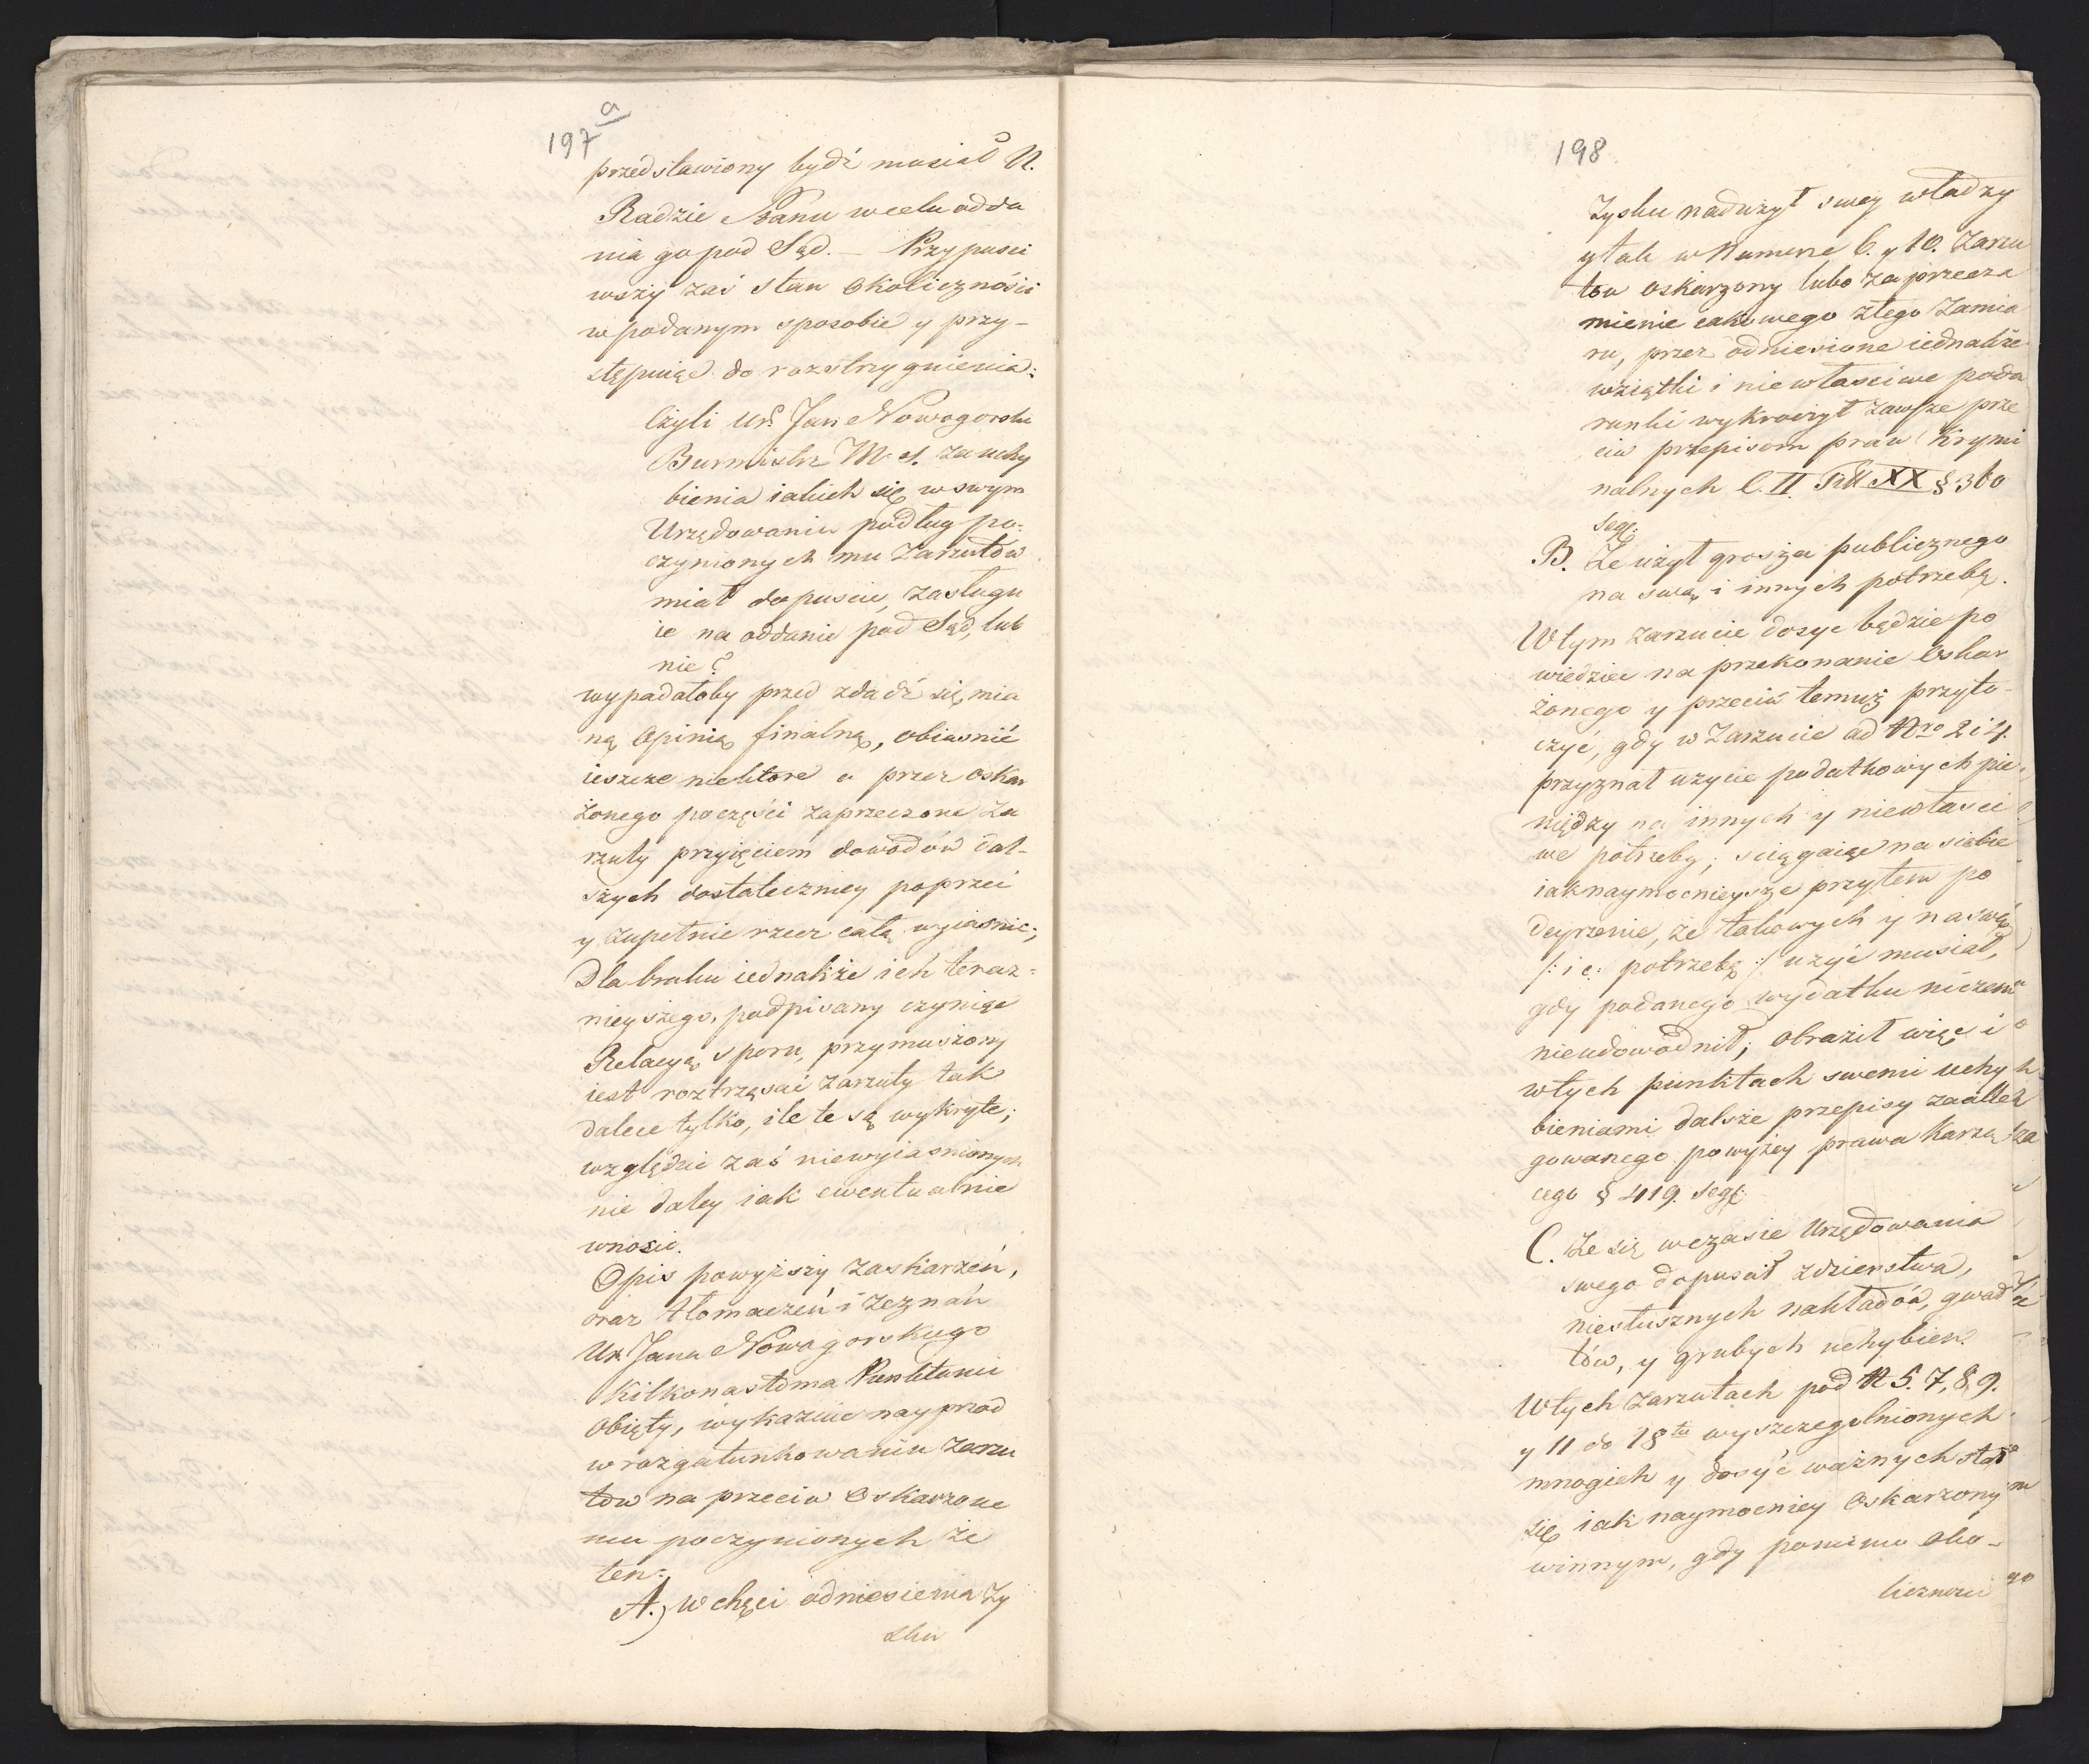 197 a
przedstawiony bydź musiał N.
Radzie Stanu w celu odda
nia go pod Sąd. — Przypusci
wszy zaś stan okoliczności
w podanym sposobie y przy-
stępuiąc do rozstrzygnienia:
Czyli Ur. Jan Nowogorski
Burmistrz M. S. za uchy
bienia iakich się w swym
Urzędowaniu podług po-
czynionych mu Zarzutów
miał dopuscić, zasługu
ie na oddanie pod Sąd, lub
nie?
wypadałoby przed zdadź się mia
ną Opinią finalną, obiasnić
ieszcze niektore a przez oskar
żonego poczęści zaprzeczone Za
rzuty przyięciem dowodów dal-
szych dostateczniey poprzeć
y zupełnie rzecz całą wyiasnic;
Dla braku iednakże ich teraz-
nieyszego, podpisany czyniąc
Relacyą sporu, przymuszony
iest roztrząsać zarzuty tak
dalece tylko, ile te są wykryte;
względzie zaś niewyiasnionych
nie daley iak ewentualnie
wnosic.
Opis powyższy zaskarżeń,
oraz tłomaczeń i zeznań
Ur Jana Nowogorskiego
kilkonastoma Punktami
obięty, wykazuie nayprzod
w rozgatunkowaniu zarzu
tow na przeciw Oskarzone
mu poczynionych że
ten:
A.) W chęci odniesienia Zy
sku
198
Zysku nadużył swey władzy
y tak w Numerze 6. y 10. Zarzu
tow oskarzony lubo zaprzecza
mienie iakowego złego Zamia
ru, przez odniesione iednakże
wziątki i niewłasciwe poda
runki wykroczył zawsze prze
ciw przepisom praw Krymi
nalnych C. II Titt XX § 360
seq:
B. Że użył grosza publicznego
na swą i innych potrzebę.
W tym zarzucie dosyc będzie po
wiedziec na przekonanie Oskar
żonego y przeciw temuż przyto-
czyć, gdy w Zarzucie ad Nro 2 i 4.
przyznał uzycie podatkowych pie
niędzy na innych y niewłasci
we potrzeby; sciągaiąc na siebie
iak naymocnieysze przytem po
deyrzenie, że takowych y na swą
/: ię: potrzebę :/ użyć musiał,
gdy podanego wydatku niczem
nieudowodnił; obraził więc i
w tych punktach swemi uchy
bieniami dalsze przepisy zaalle
gowanego powyżey prawa Karzą
cego § 419. seq:
C. Że się w czasie Urzędowania
swego dopuscił zdzierstwa,
niesłusznych nakładów, gwał
tów, y grubych uchybien.
W tych zarzutach pod N 5. 7, 8, 9.
y 11 do 18tu wyszczegolnionych
mnogich y dosyć ważnych stał
się iak naymocniey Oskarzony
winnym, gdy pomimo oko-
licznosci